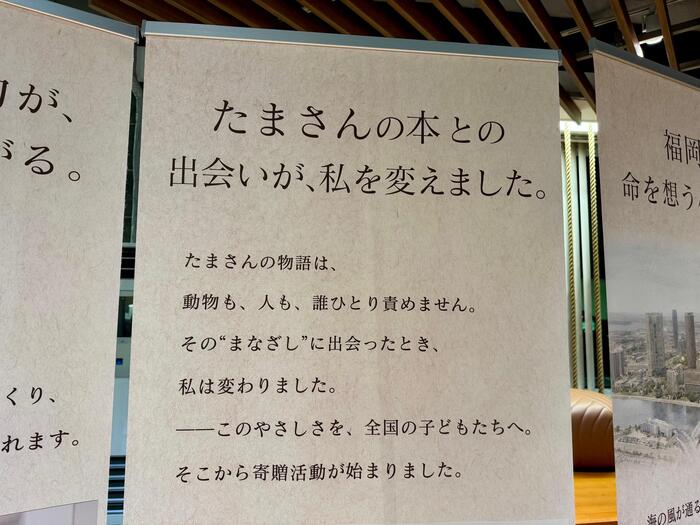 が、
がる。
くり、
れます。
たまさんの本との
出会いが、私を変えました。
たまさんの物語は、
動物も、人も、誰ひとり責めません。
その“まなざし”に出会ったとき、
私は変わりました。
――このやさしさを、全国の子どもたちへ。
そこから寄贈活動が始まりました。
福岡
命を想う
海の風が通る